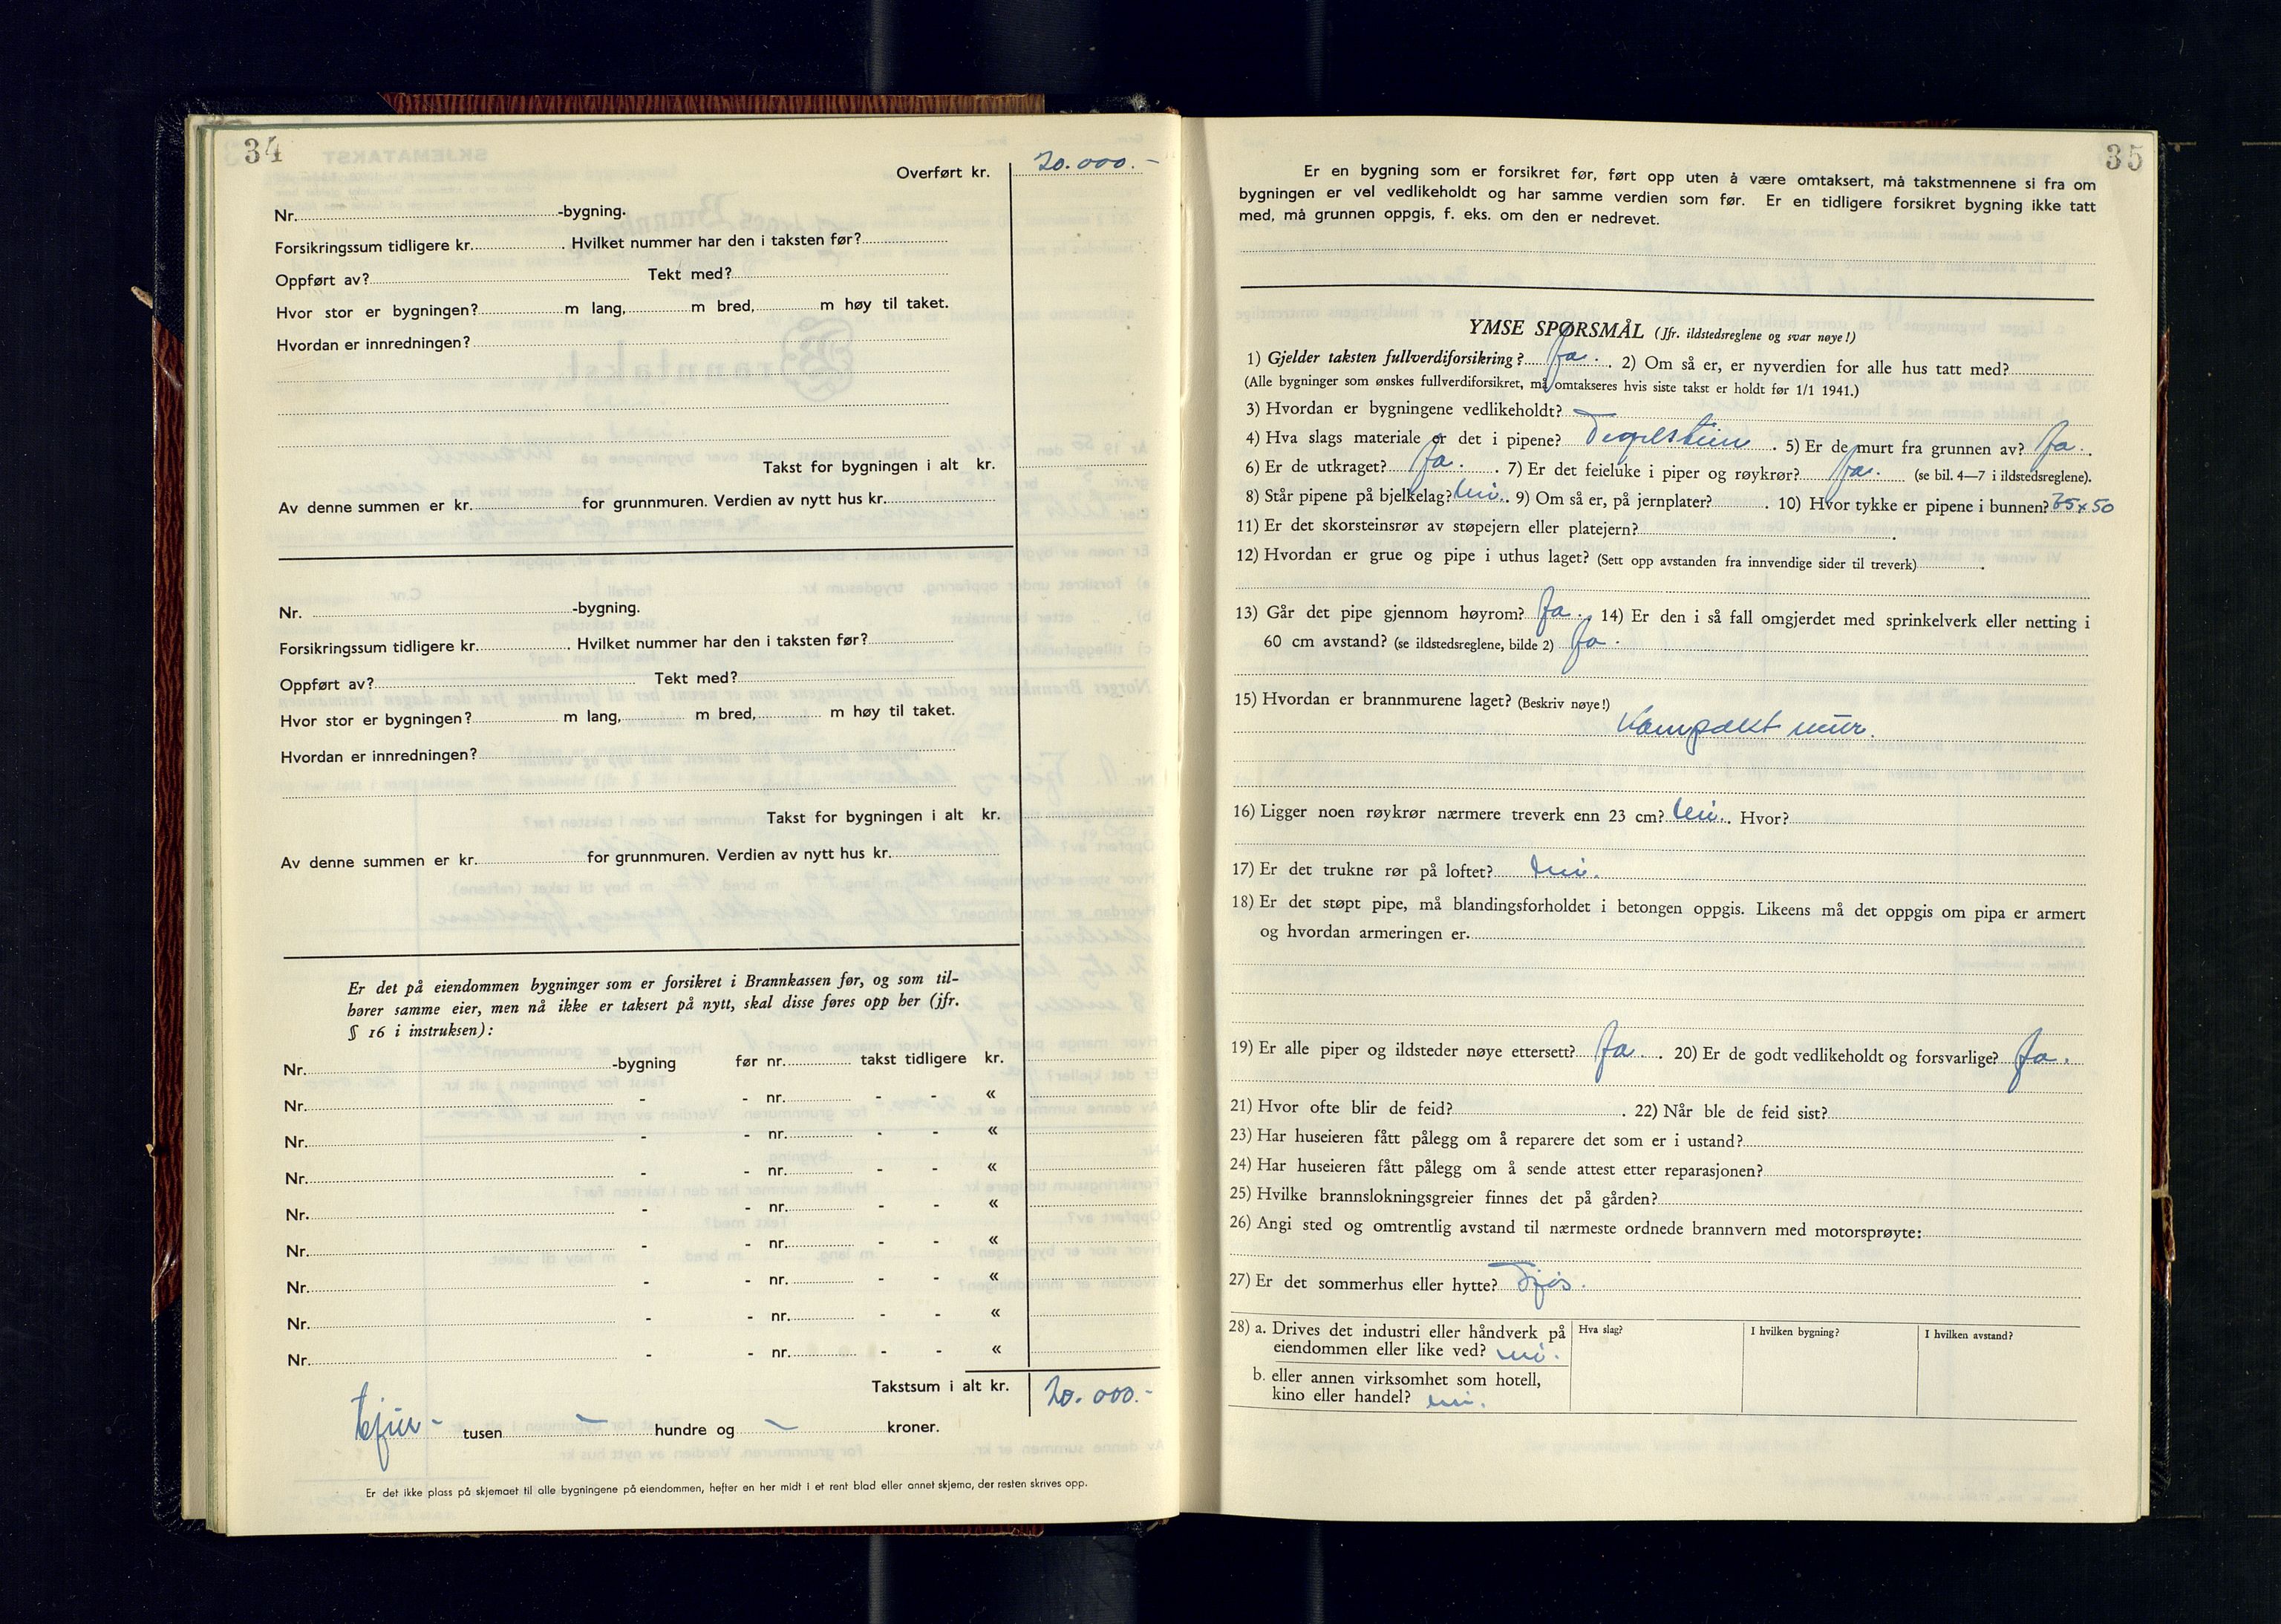 34
Overført kr. 20.000.-
Nr. -bygning.
Forsikringssum tidligere kr. . Hvilket nummer har den i taksten før?
Oppført av? Tekt med?
Hvor stor er bygningen? m lang, m bred, m høy til taket.
Hvordan er innredningen?
Takst for bygningen i alt kr.
Av denne summen er kr. for grunnmuren. Verdien av nytt hus kr.
Nr. -bygning.
Forsikringssum tidligere kr. . Hvilket nummer har den i taksten før?
Oppført av? Tekt med?
Hvor stor er bygningen? m lang, m bred, m høy til taket.
Hvordan er innredningen?
Takst for bygningen i alt kr.
Av denne summen er kr. for grunnmuren. Verdien av nytt hus kr.
Er det på eiendommen bygninger som er forsikret i Brannkassen før, og som til-
hører samme eier, men nå ikke er taksert på nytt, skal disse føres opp her (jfr.
§ 16 i instruksen):
Nr. -bygning før nr. takst tidligere kr.
Nr. - - nr. - - «
Nr. - - nr. - - «
Nr. - - nr. - - «
Nr. - - nr. - - «
Nr. - - nr. - - «
Nr. - - nr. - - «
Nr. - - nr. - - «
Nr. - - nr. - - «
Takstsum i alt kr. 20.000.-
tusen - hundre og - kroner.
Er det ikke plass på skjemaet til alle bygningene på eiendommen, hefter en her midt i et rent blad eller annet skjema, der resten skrives opp.
35
Er en bygning som er forsikret før, ført opp uten å være omtaksert, må takstmennene si fra om
bygningen er vel vedlikeholdt og har samme verdien som før. Er en tidligere forsikret bygning ikke tatt
med, må grunnen oppgis, f. eks. om den er nedrevet.
YMSE SPØRSMÅL (Jfr. ildstedsreglene og svar nøye!)
1) Gjelder taksten fullverdiforsikring? Ja. . 2) Om så er, er nyverdien for alle hus tatt med?
(Alle bygninger som ønskes fullverdiforsikret, må omtakseres hvis siste takst er holdt før 1/1 1941.)
3) Hvordan er bygningene vedlikeholdt? -
4) Hva slags materiale er det i pipene? Teglstein . 5) Er de murt fra grunnen av? Ja. .
6) Er de utkraget? Ja. . 7) Er det feieluke i piper og røykrør? Ja. (se bil. 4—7 i ildstedsreglene).
8) Står pipene på bjelkelag? Nei. . 9) Om så er, på jernplater? . 10) Hvor tykke er pipene i bunnen? 35x50
11) Er det skorsteinsrør av støpejern eller platejern? .
12) Hvordan er grue og pipe i uthus laget? (Sett opp avstanden fra innvendige sider til treverk) .
13) Går det pipe gjennom høyrom? Ja. . 14) Er den i så fall omgjerdet med sprinkelverk eller netting i
60 cm avstand? (se ildstedsreglene, bilde 2) Ja.
15) Hvordan er brannmurene laget? (Beskriv nøye!)
Kompakt mur.
16) Ligger noen røykrør nærmere treverk enn 23 cm? Nei. . Hvor?
17) Er det trukne rør på loftet? Nei.
18) Er det støpt pipe, må blandingsforholdet i betongen oppgis. Likeens må det oppgis om pipa er armert
og hvordan armeringen er.
19) Er alle piper og ildsteder nøye ettersett? Ja. . 20) Er de godt vedlikeholdt og forsvarlige? Ja.
21) Hvor ofte blir de feid? . 22) Når ble de feid sist?
23) Har huseieren fått pålegg om å reparere det som er i ustand?
24) Har huseieren fått pålegg om å sende attest etter reparasjonen?
25) Hvilke brannslokningsgreier finnes det på gården?
26) Angi sted og omtrentlig avstand til nærmeste ordnede brannvern med motorsprøyte:
27) Er det sommerhus eller hytte? Fjøs.
28) a. Drives det industri eller håndverk på Hva slag? I hvilken bygning? I hvilken avstand?
eiendommen eller like ved? nei.
b. eller annen virksomhet som hotell,
kino eller handel? nei.